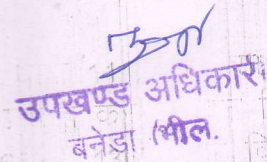 उपखण्ड अधिकार
बनेडा (भील.